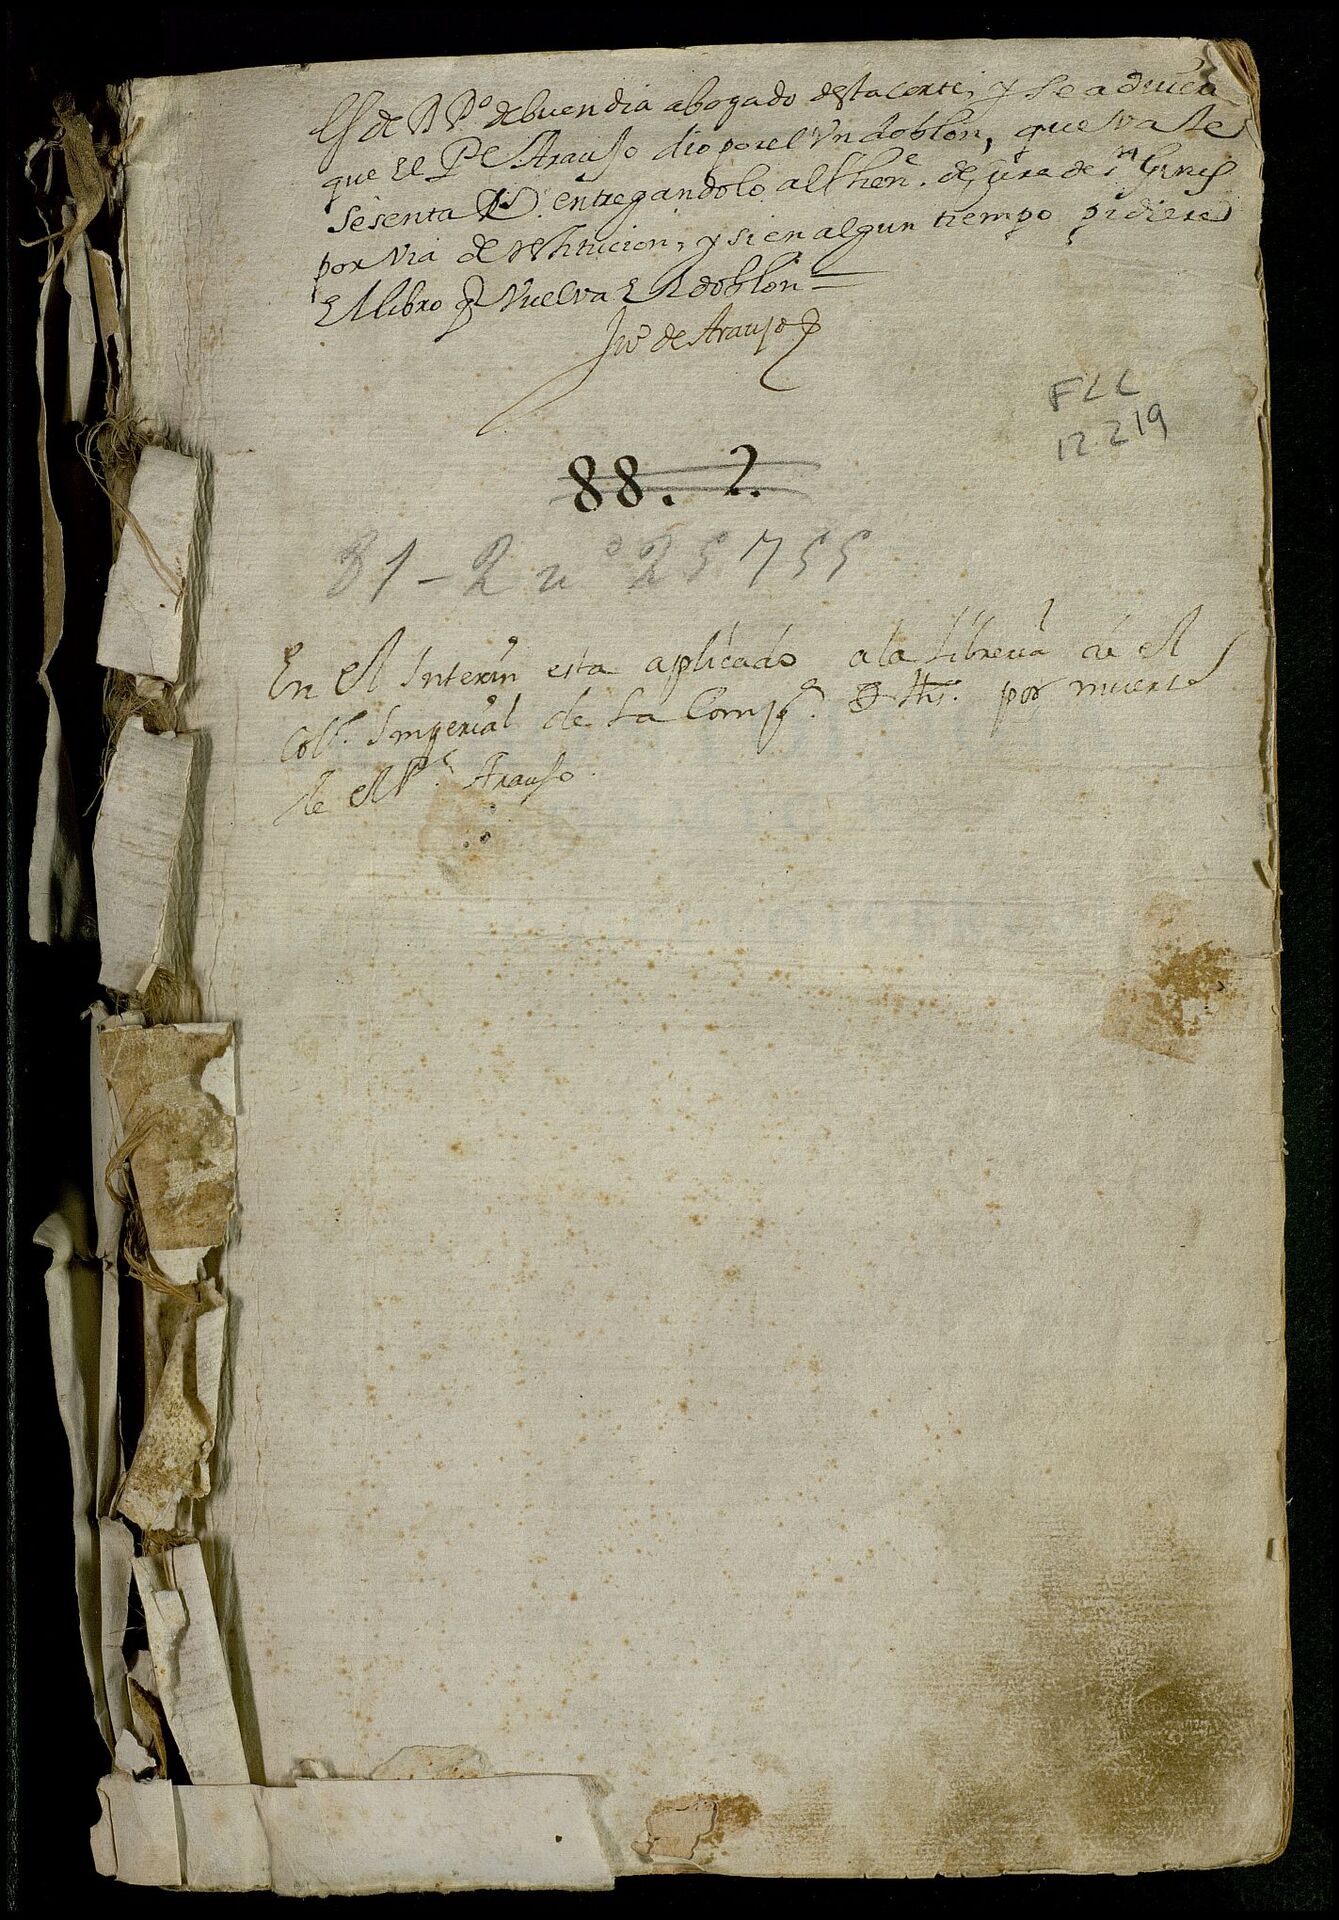 Es de D Pº de buendia abogado desta corte, y se advierta
que el Pe Araujo dio por el Un doblon, que vale
sesenta Rs. entregandolo al thene. de Cura de Sn Gines
por via de restitucion, y si en algun tiempo pidieren
El libro q Vuelva El doblon
Juº de Araujo
FLL
12219
88. 2.
81-2 nº 25755
En el Interin esta aplicado a la Libreria de el
Colº. Imperial de la Compª. de Jhs. por muerte
de el Pe. Araujo.